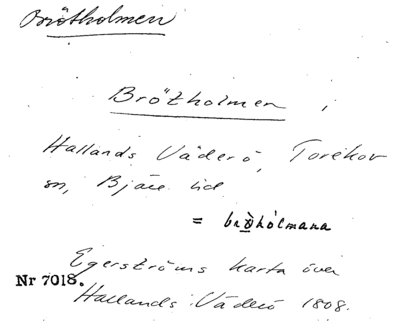 Brötholmen
Brötholmen,
Hallands Väderö, Torekov
sn, Bjäre hd
= brö̀hòlmana
Egerströms karta över
Nr 7018.
Hallands Väderö 1808.